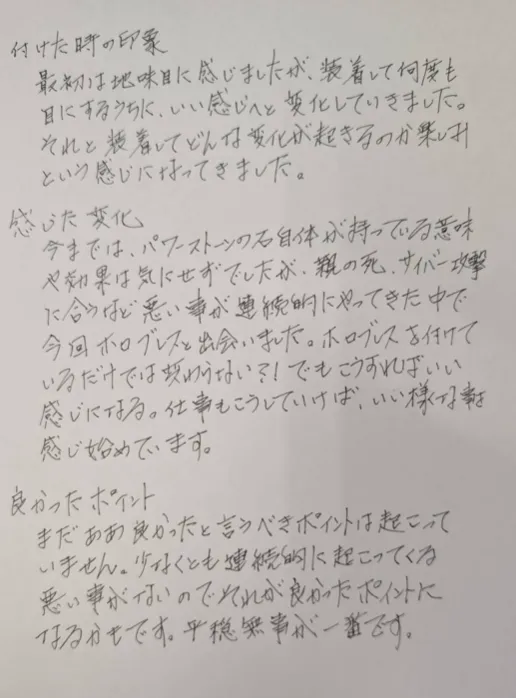 付けた時の印象
最初は地味目に感じましたが、装着して何度も
目にするうちに、いい感じへと変化していきました。
それと装着してどんな変化が起きるのか楽しみ
という感じになってきました。
感じた変化
今までは、パワーストーンの石自体が持っている意味
や効果は気にせずでしたが、親の死、サイバー攻撃
に合うなど悪い事が連続的にやってきた中で
今回ホロブレスと出会いました。ホロブレスを付けて
いるだけでは変わらない?!でもこうすればいい
感じになる。仕事もこうしていけば、いい様な事は
感じ始めています。
良かったポイント
まだああ良かったと言うべきポイントは起こって
いません。少なくとも連続的に起こってくる
悪い事がないのでそれが良かったポイントに
なるかもです。平穏無事が一番です。